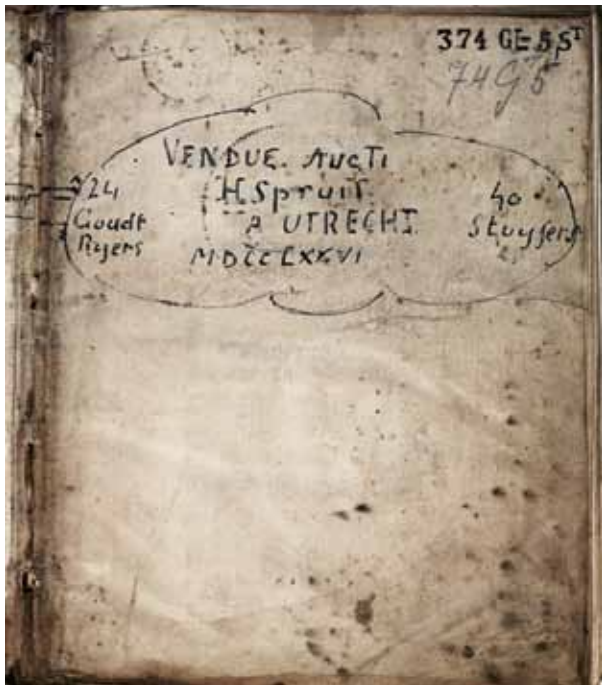 374 GE 5 Sᵀ
74 G 5
VENDUE. AUCTI
HSpruit
A UTRECHT
MDCCLXXVI
24
Goudt
Ryers
40
Stuyfers